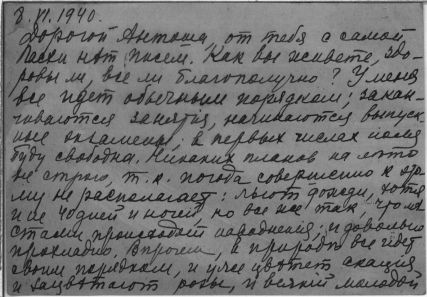 8.VI.1940.
Дорогой Антоша, от тебя с самой
Пасхи нѣт писем. Как вы живете, здо-
ровы ли, все ли благополучно? У меня
все идет обычным порядком; закан-
чиваются занятия, начинаются выпуск-
ные экзамены, в первых числах июля
буду свободна. Никаких планов на лѣто
не строю, т. к. погода совершенно к это-
му не располагает: льют дожди, хотя
и не 40 дней и ночей, но все же так, что
стали происходить наводнения, и довольно
прохладно. Впрочем, в природѣ все идет
своим порядком, и уже цвѣтет акация
и зацвѣтают розы, и всякий молодой